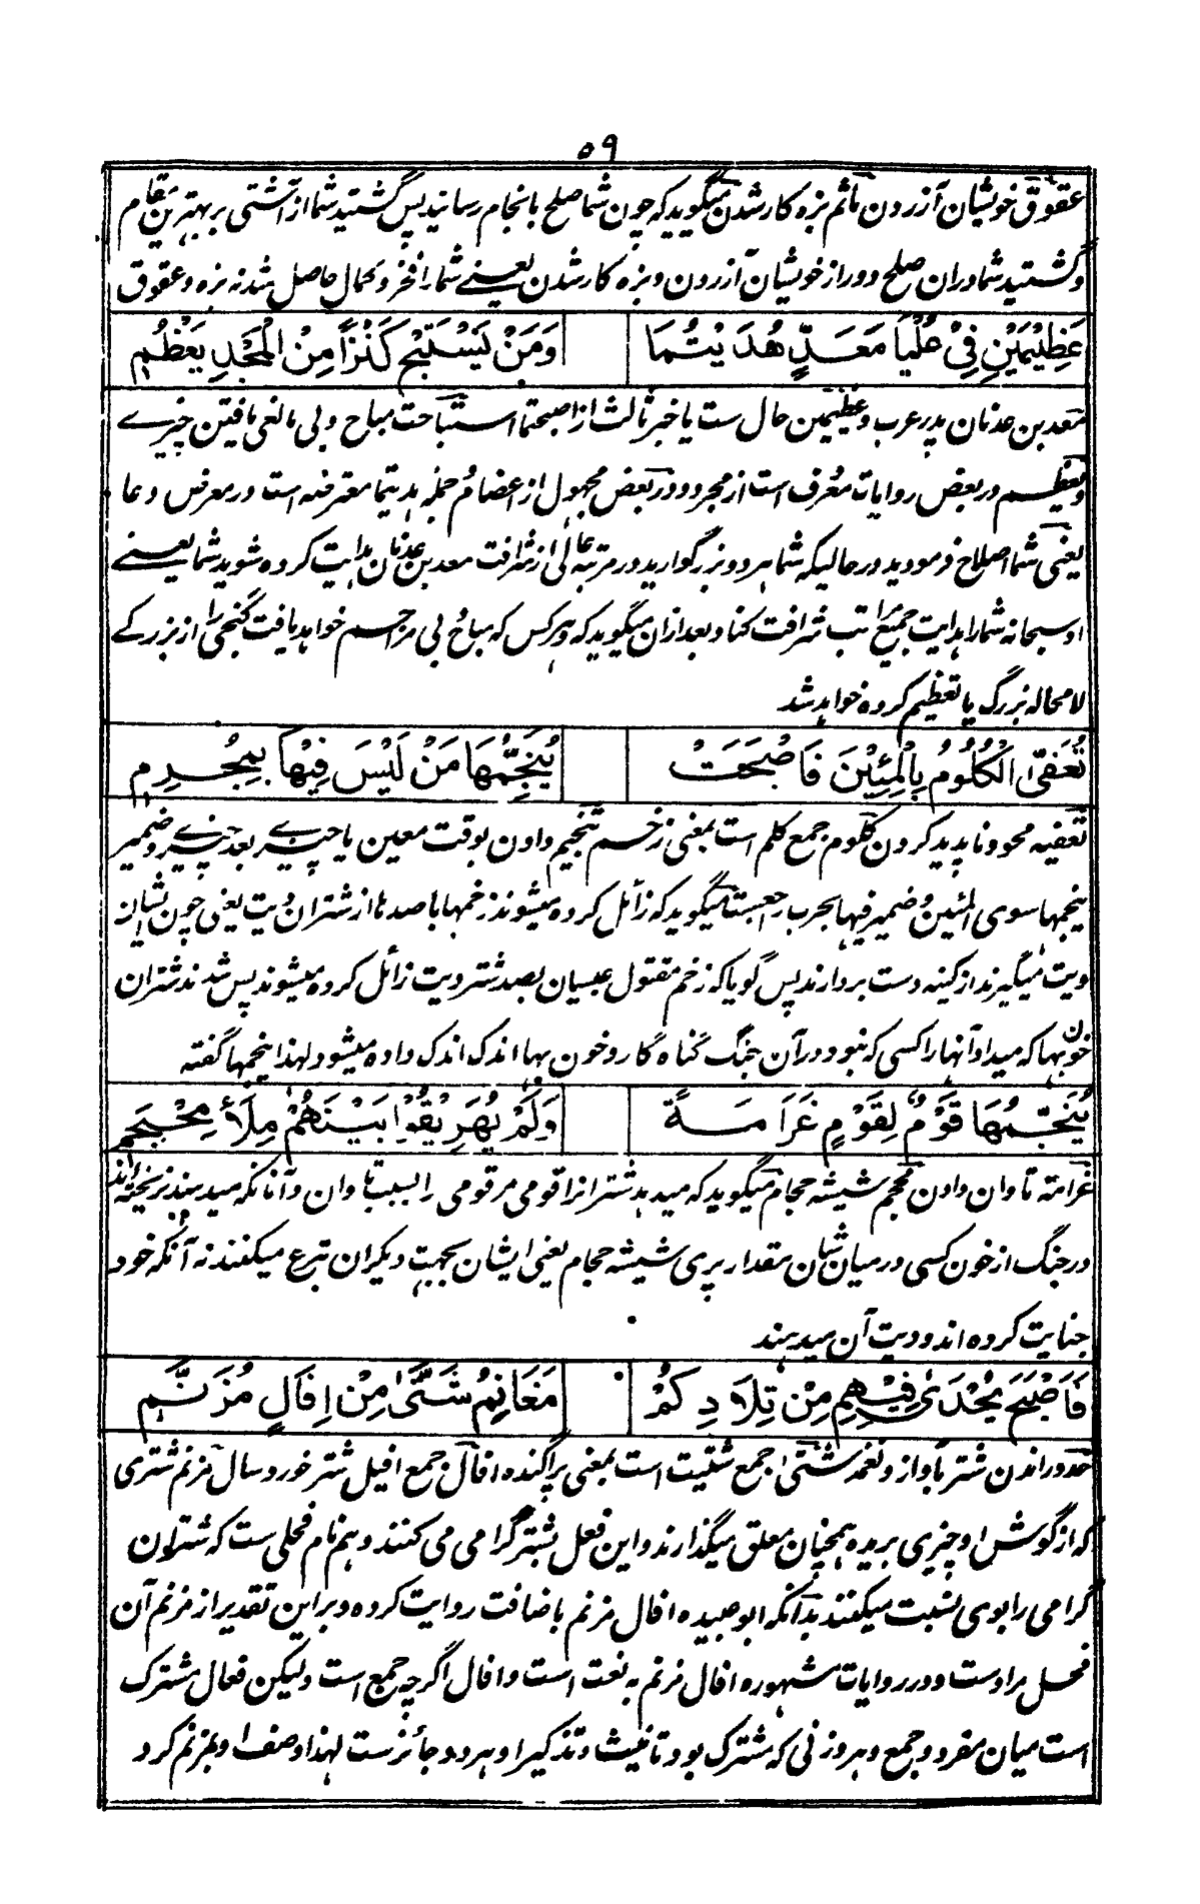 ۵۹
عقوق خویشان آزردن مأثم بزه کار شدن میگوید که چون شما صلح بانجام رسانیدید پس گشتید شما از آشتی بر بهترین مقام
و گشتید شما دران صلح دور از خویشان آزردن و بزه کار شدن یعنے شما را فخر و کمال حاصل شد نه بزه و عقوق
عَظِيْمَيْنِ فِيْ عُلْيَا مَعَدٍّ هُدِيْتُمَا وَمَنْ يَسْتَبِحْ كَنْزًا مِنَ الْمَجْدِ يَعْظُمِ
معد بن عدنان پدر عرب و عظیمین حال ست یا خبر ثالث از اصبحتما استباحت مباح و بی مانع یافتن چیزے
و یعظم در بعض روایات معرف است از مجرد و در بعض مجهول از اعضام جمله هدیتما معترضه است در معرض دعا
یعنی شما اصلاح فرمودید در حالیکه شما هر دو بزرگوارید در مرتبه عالی از شرافت معد بن عدنان هدایت کرده شوید شما یعنے
او سبحانه شما را هدایت جمیع مراتب شرافت کناد بعد ازان میگوید که و هر کس که مباح بی مزاحم خواهد یافت گنجی را از بزرگے
لا محاله بزرگ یا تعظیم کرده خواهد شد
تُعَفّٰى الْكُلُوْمُ بِالْمِئِيْنَ فَاَصْبَحَتْ يُنَجِّمُهَا مَنْ لَيْسَ فِيْهَا بِمُجْرِمِ
تعفیه محو و ناپدید کردن کلوم جمع کلم است بمعنی زخم تنجیم دادن بوقت معین یا چیزے بعد چیزے و ضمیر
ینجمها سوی المئین و ضمیر فیها بحرب راجعست میگوید که زائل کرده میشوند زخمها با صدها از شتران دیت یعنی چون ایشان
دیت میگیرند از کینه دست بردارند پس گویا که زخم مقتول عبسیان بصد شتر دیت زائل کرده میشوند پس شدند شتران
خون بها که میداد آنها را کسی که نبود در آن جنگ گناه گار و خون بها اندک اندک داده میشود لهذا ینجمها گفته
يُنَجِّمُهَا قَوْمٌ لِقَوْمٍ غَرَامَةً وَلَمْ يُهَرِيْقُوْا بَيْنَهُمْ مِلْأَ مِحْجَمِ
غرامة تاوان دادن محجم شیشه حجام میگوید که میدهد شتران را قومی مر قومی را بسبب تاوان و آنانکه میدهند نریخته اند
در جنگ از خون کسی در میان شان مقدار پری شیشه حجام یعنی ایشان بجهت دیگران تبرع میکنند نه آنکه خود
جنایت کرده اند و دیت آن میدهند
فَاَصْبَحَ يُحْدٰى فِيْهِمِ مِنْ تِلَادِكُمْ مَغَانِمُ شَتّٰى مِنْ اِفَالٍ مُزَنَّمِ
حدو راندن شتر بآواز و نغمه شتی جمع شتیت است بمعنی پراگنده افال جمع افیل شتر خورد سال مزنم شتری
که از گوش او چیزی بریده همچنان معلق میگذارند و این فعل بشتر گرامی می کنند و هم نام فحلی ست که شتران
گرامی را بوی نسبت میکنند بدانکه ابو عبیده افال مزنم باضافت روایت کرده و برین تقدیر از مزنم آن
فحل مراد ست و در روایات مشهوره افال مزنم به نعت است و افال اگرچه جمع است ولیکن فعال مشترک
است میان مفرد و جمع و هر وزنی که مشترک بود تانیث و تذکیر او هر دو جائزست لهذا وصف او بمزنم کرد